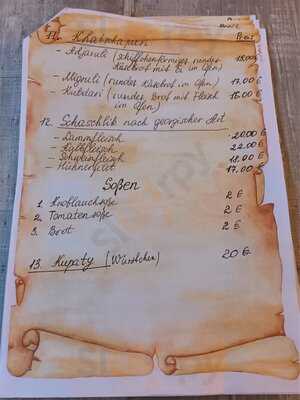 11. Khatschapuri Preis
- Adjaruli (schiffchenförmiges rundes 18.00 €
Käsebrot mit Ei im Ofen)
- Megruli (rundes Käsebrot im Ofen) 17.00 €
- Kubdari (rundes Brot mit Fleisch 18.00 €
im Ofen)
12. Schaschlik nach georgischer Art
- Lammfleisch 20.00 €
- Kalbfleisch 22.00 €
- Schweinfleisch 18.00 €
- Hühnerfilet 17.00 €
Soßen
1 Knoblauchsoße 2 €
2. Tomatensoße 2 €
3. Brot 2 €
13. Kupaty (Würstchen) 20 €